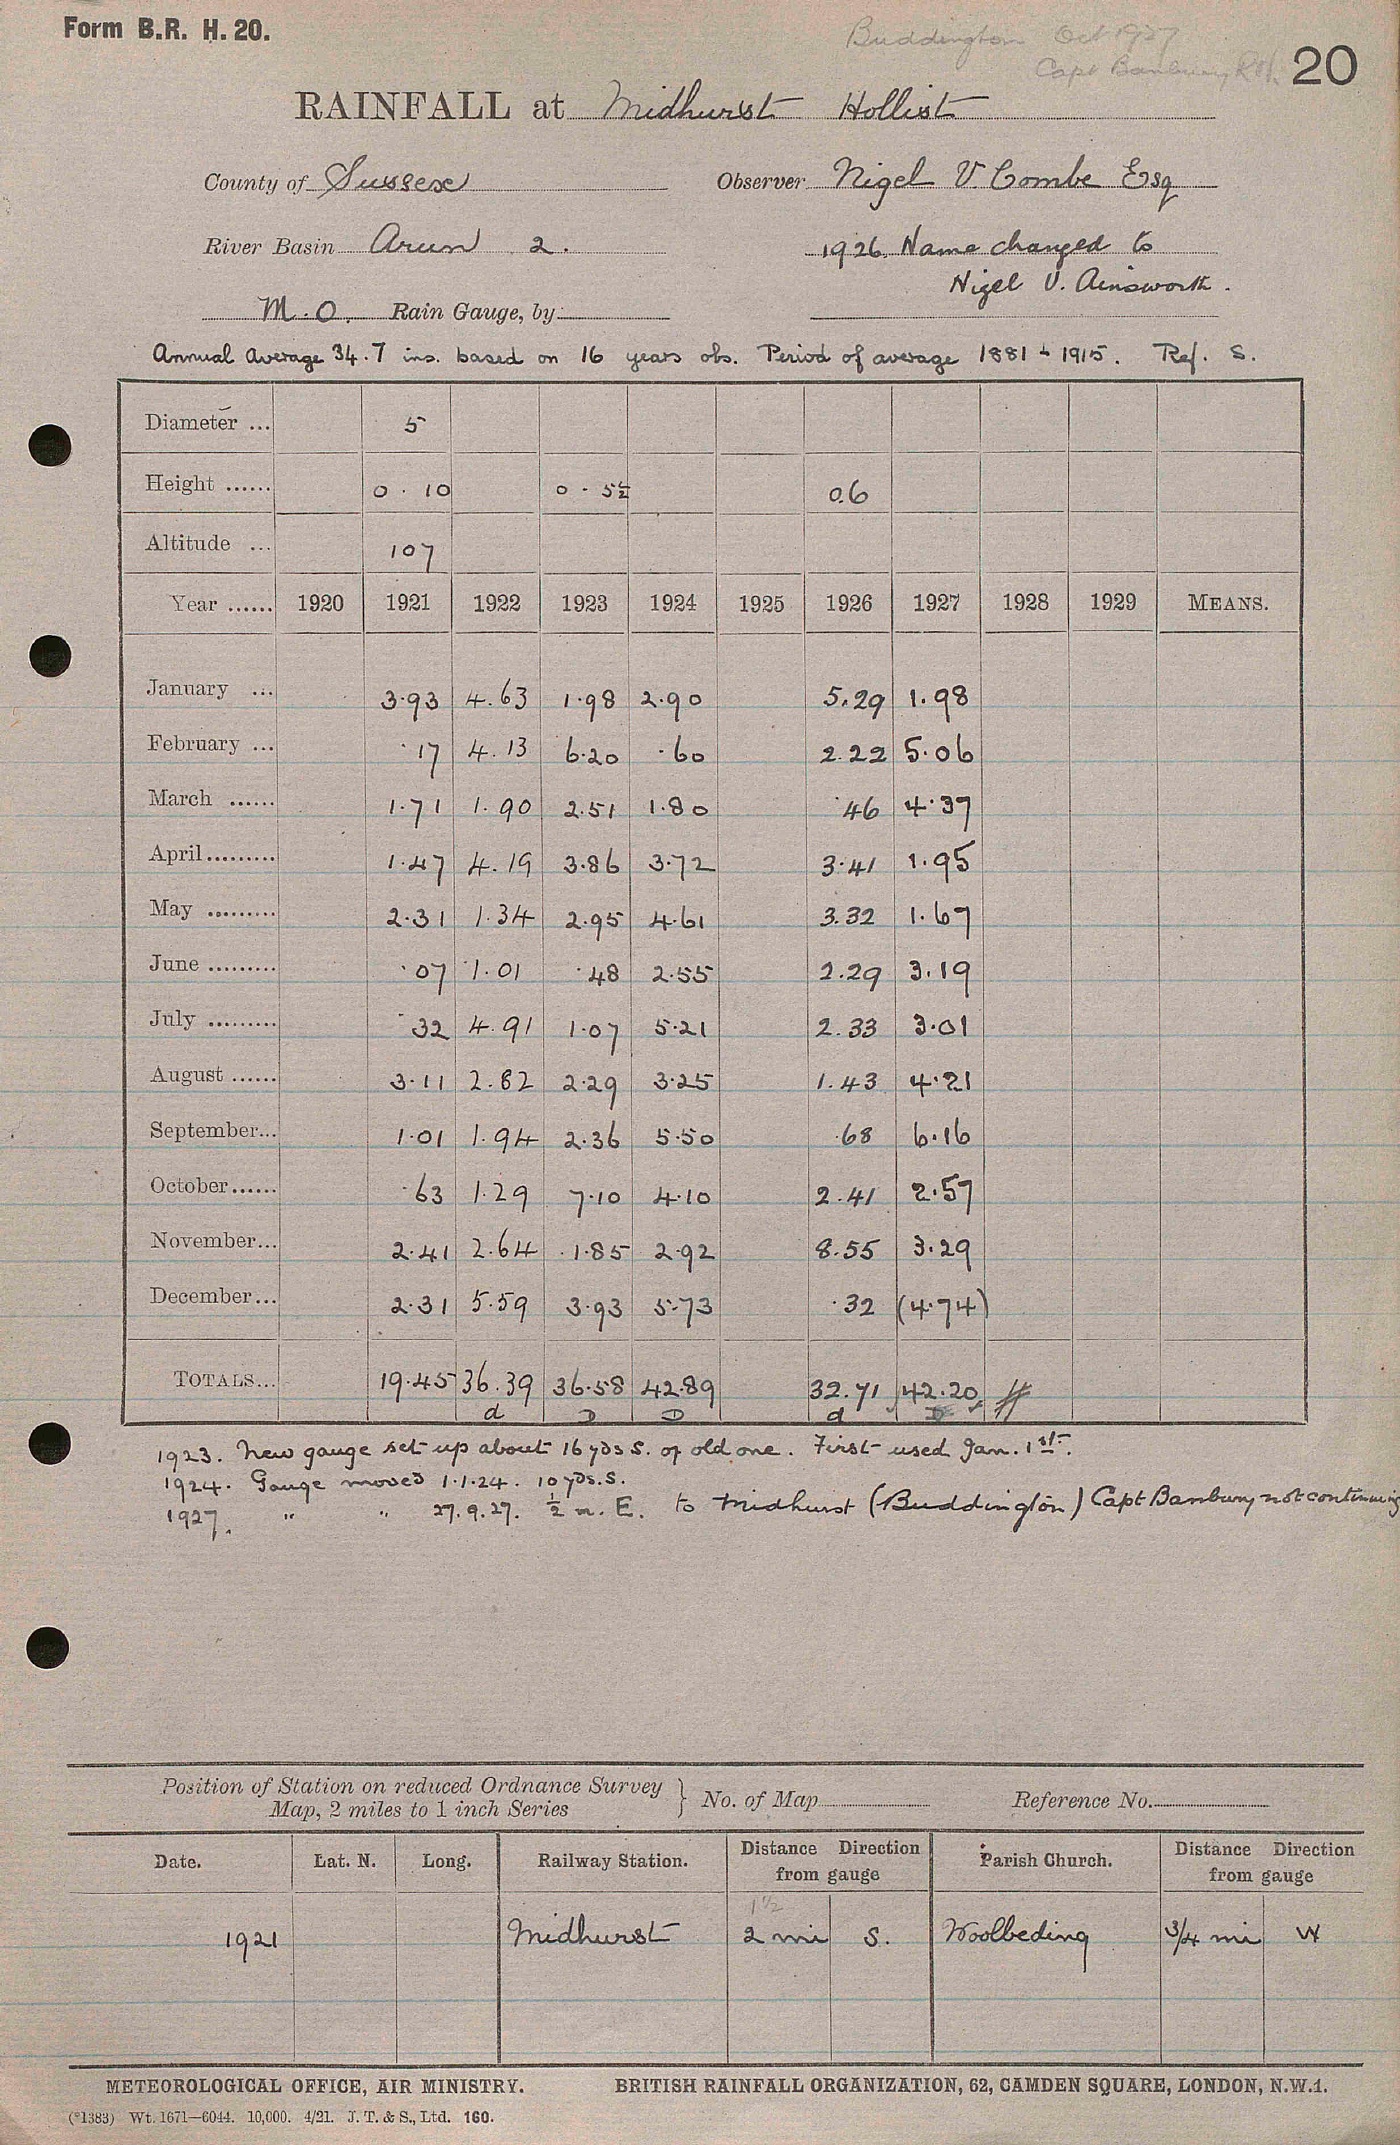 Form B.R. H. 20.
Buddington Oct 1927
Capt Banbury 20
RAINFALL at Midhurst Hollist
County of Sussex Observer Nigel V. Combe Esq
River Basin Arun 2. 1926. Name changed to
Nigel V. Ainsworth.
M.O. Rain Gauge, by
Annual Average 34.7 ins. based on 16 years obs. Period of average 1881-1915. Ref. S.
Diameter ... 5
Height ...... 0 . 10 0 - 5½ 0.6
Altitude ... 107
Year ...... 1920 1921 1922 1923 1924 1925 1926 1927 1928 1929 MEANS.
January ... 3.93 4.63 1.98 2.90 5.29 1.98
February ... .17 4.13 6.20 .60 2.22 5.06
March ...... 1.71 1.90 2.51 1.80 .46 4.37
April......... 1.47 4.19 3.86 3.72 3.41 1.95
May ......... 2.31 1.34 2.95 4.61 3.32 1.67
June ......... .07 1.01 .48 2.55 2.29 3.19
July ......... .32 4.91 1.07 5.21 2.33 3.01
August ...... 3.11 2.82 2.29 3.25 1.43 4.21
September... 1.01 1.94 2.36 5.50 .68 6.16
October...... .63 1.29 7.10 4.10 2.41 2.57
November... 2.41 2.64 1.85 2.92 8.55 3.29
December... 2.31 5.59 3.93 5.73 .32 (4.74)
TOTALS... 19.45 36.39 36.58 42.89 32.71 42.20
d D D d D
1923. New gauge set up about 16 yds S. of old one. First used Jan. 1st.
1924. Gauge moved 1.1.24. 10 yds. S.
1927. " " 27.9.27. ½ m. E. to Midhurst (Buddington) Capt Banbury not continuing
Position of Station on reduced Ordnance Survey
Map, 2 miles to 1 inch Series } No. of Map Reference No.
Date. Lat. N. Long. Railway Station. Distance Direction from gauge Parish Church. Distance Direction from gauge
1½
1921 Midhurst 2 mi S. Woolbeding 3/4 mi W
METEOROLOGICAL OFFICE, AIR MINISTRY. BRITISH RAINFALL ORGANIZATION, 62, CAMDEN SQUARE, LONDON, N.W.1.
(*1383) Wt. 1671—6044. 10,000. 4/21. J. T. & S., Ltd. 160.